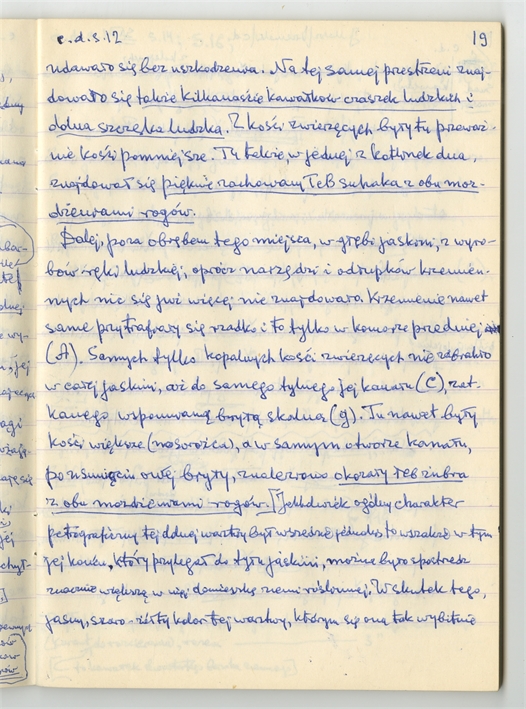 c.d.s.12 19
udawało się bez uszkodzenia. Na tej samej przestrzeni znaj-
dowało się także kilkanaście kawałków czaszek ludzkich i
dolna szczęka ludzka. Z kości zwierzęcych były tu przeważ-
nie kości pomniejsze. Tu także, w jednej z kotlinek dna,
znajdował się pięknie zachowany łeb suhaka z obu moż-
dżeniami rogów.
Dalej, poza obrębem tego miejsca, w głębi jaskini, z wyro-
bów ręki ludzkiej, oprócz narzędzi i odłupków krzemien-
nych nic się już więcej nie znajdowało. Krzemienie nawet
same przytrafiały się rzadko i to tylko w komorze przedniej
(A). Samych tylko kopalnych kości zwierzęcych nie zabrakło
w całej jaskini, aż do samego tylnego jej kanału (C), zat-
kanego wspomnianą bryłą skalną (g). Tu nawet były
kości większe (nosorożca), a w samym otworze kanału,
po usunięciu owej bryły, znaleziono okazały łeb żubra
z obu możdżeniami rogów. [] Jakkolwiek ogólny charakter
petrograficzny tej dolnej warstwy był wszędzie jednaki, to wszakże w tym
jej końcu, który przylegał do tyłu jaskini, można było spostrzec
znacznie większą w niej domieszkę ziemi roślinnej. Wskutek tego,
jasny, szaro-żółty kolor tej warstwy, którym się ona tak wybitnie